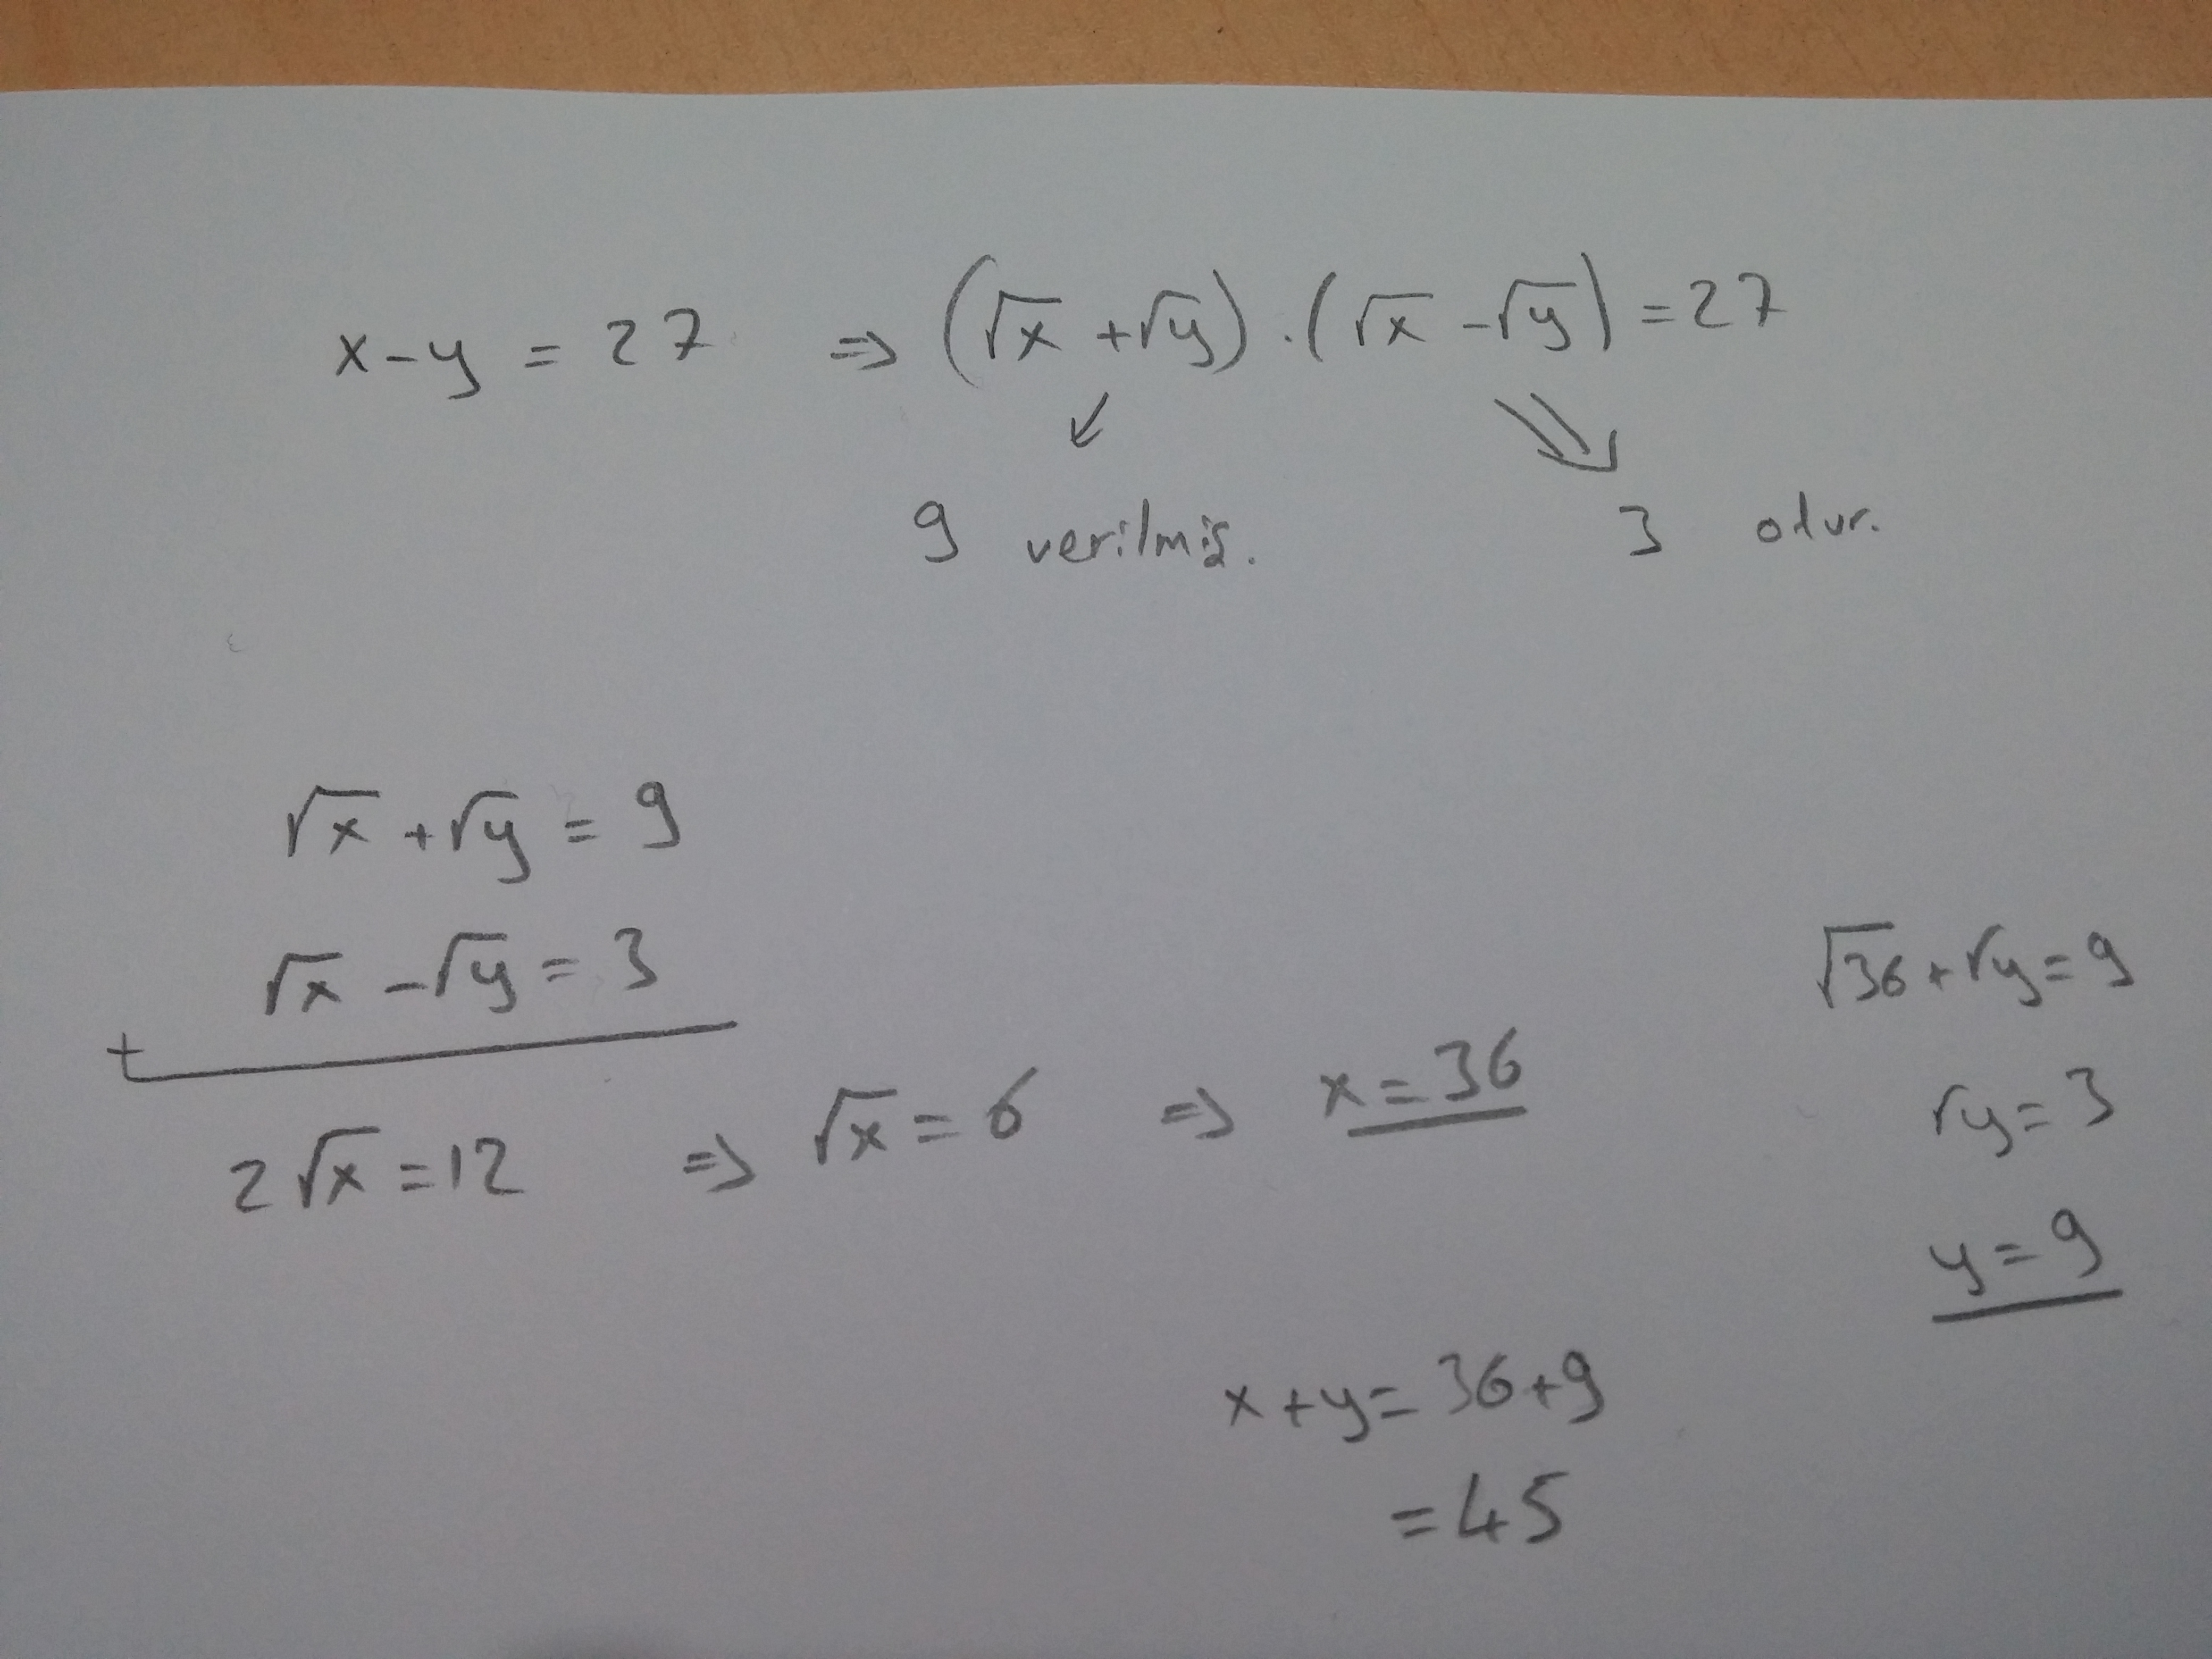 x-y = 27 ⇒ (√x +√y) . (√x -√y) = 27
↙ ⇘
9 verilmiş. 3 olur.
√x +√y = 9
√x -√y = 3
+
2√x = 12 ⇒ √x = 6 ⇒ x = 36
√36 + √y = 9
√y = 3
y = 9
x + y = 36 + 9
= 45